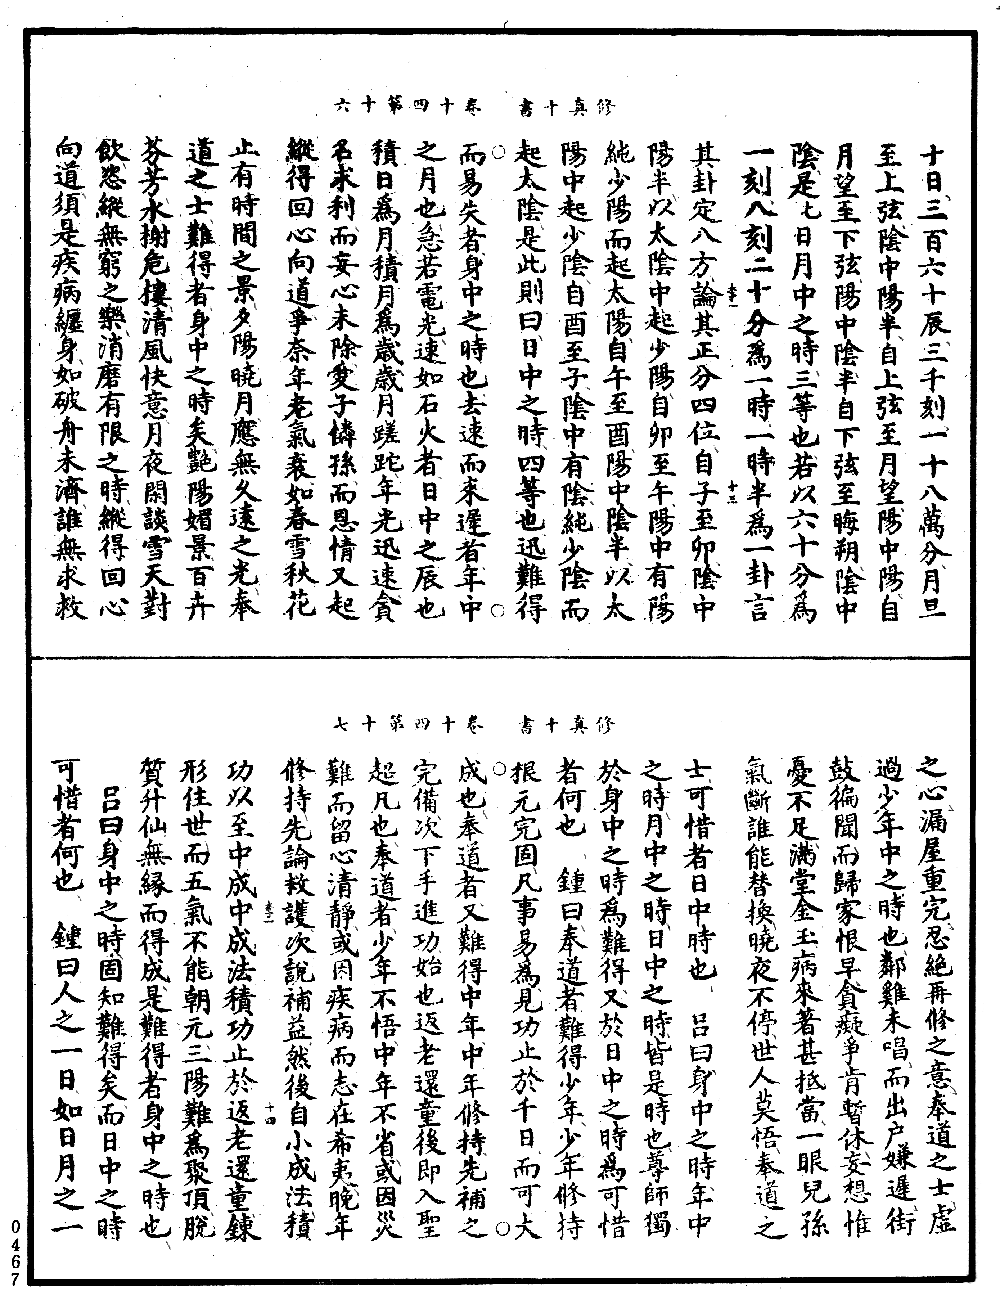 修真十書　卷十四第十六
十日三百六十辰三千刻一十八萬分月旦
至上弦陰中陽半自上弦至月望陽中陽自
月望至下弦陽中陰半自下弦至晦朔陰中
陰是七日月中之時三等也若以六十分爲
一刻八刻二十分爲一時一時半爲一卦言
十三
其卦定八方論其正分四位自子至卯陰中
陽半以太陰中起少陽自卯至午陽中有陽
純少陽而起太陽自午至酉陽中陰半以太
陽中起少陰自酉至子陰中有陰純少陰而
起太陰是此則曰日中之時四等也迅難得
而易失者身中之時也去速而來遲者年中
之月也急若電光速如石火者日中之辰也
積日爲月積月爲歲歲月蹉跎年光迅速貪
名求利而妄心未除愛子憐孫而恩情又起
縱得回心向道爭奈年老氣衰如春雪秋花
止有時間之景夕陽曉月應無久遠之光奉
道之士難得者身中之時矣艷陽媚景百卉
芬芳水榭危樓清風快意月夜閑談雪天對
飲恣縱無窮之樂消磨有限之時縱得回心
向道須是疾病纏身如破舟未濟誰無求救
修真十書　卷十四第十七
之心漏屋重完忍絶再修之意奉道之士虛
過少年中之時也鄰雞未唱而出户嫌遲街
鼓徧聞而歸家恨早貪癡爭肯暫休妄想惟
憂不足滿堂金玉病來著甚抵當一眼兒孫
氣斷誰能替換曉夜不停世人莫悟奉道之
士可惜者日中時也　吕曰身中之時年中
之時月中之時日中之時皆是時也尊師獨
於身中之時爲難得又於日中之時爲可惜
者何也　鍾曰奉道者難得少年少年修持
根元完固凡事易爲見功止於千日而可大
成也奉道者又難得中年中年修持先補之
完備次下手進功始也返老還童後即入聖
超凡也奉道者少年不悟中年不省或因災
難而留心清靜或因疾病而志在希夷晚年
修持先論救護次說補益然後自小成法積
十四
功以至中成中成法積功止於返老還童鍊
形住世而五氣不能朝元三陽難爲聚頂脫
質升仙無緣而得成是難得者身中之時也
吕曰身中之時固知難得矣而日中之時
可惜者何也　鍾曰人之一日如日月之一
0467